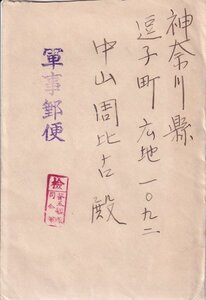 神奈川縣
逗子町広地一〇九二
中山周比古殿
軍事郵便
検